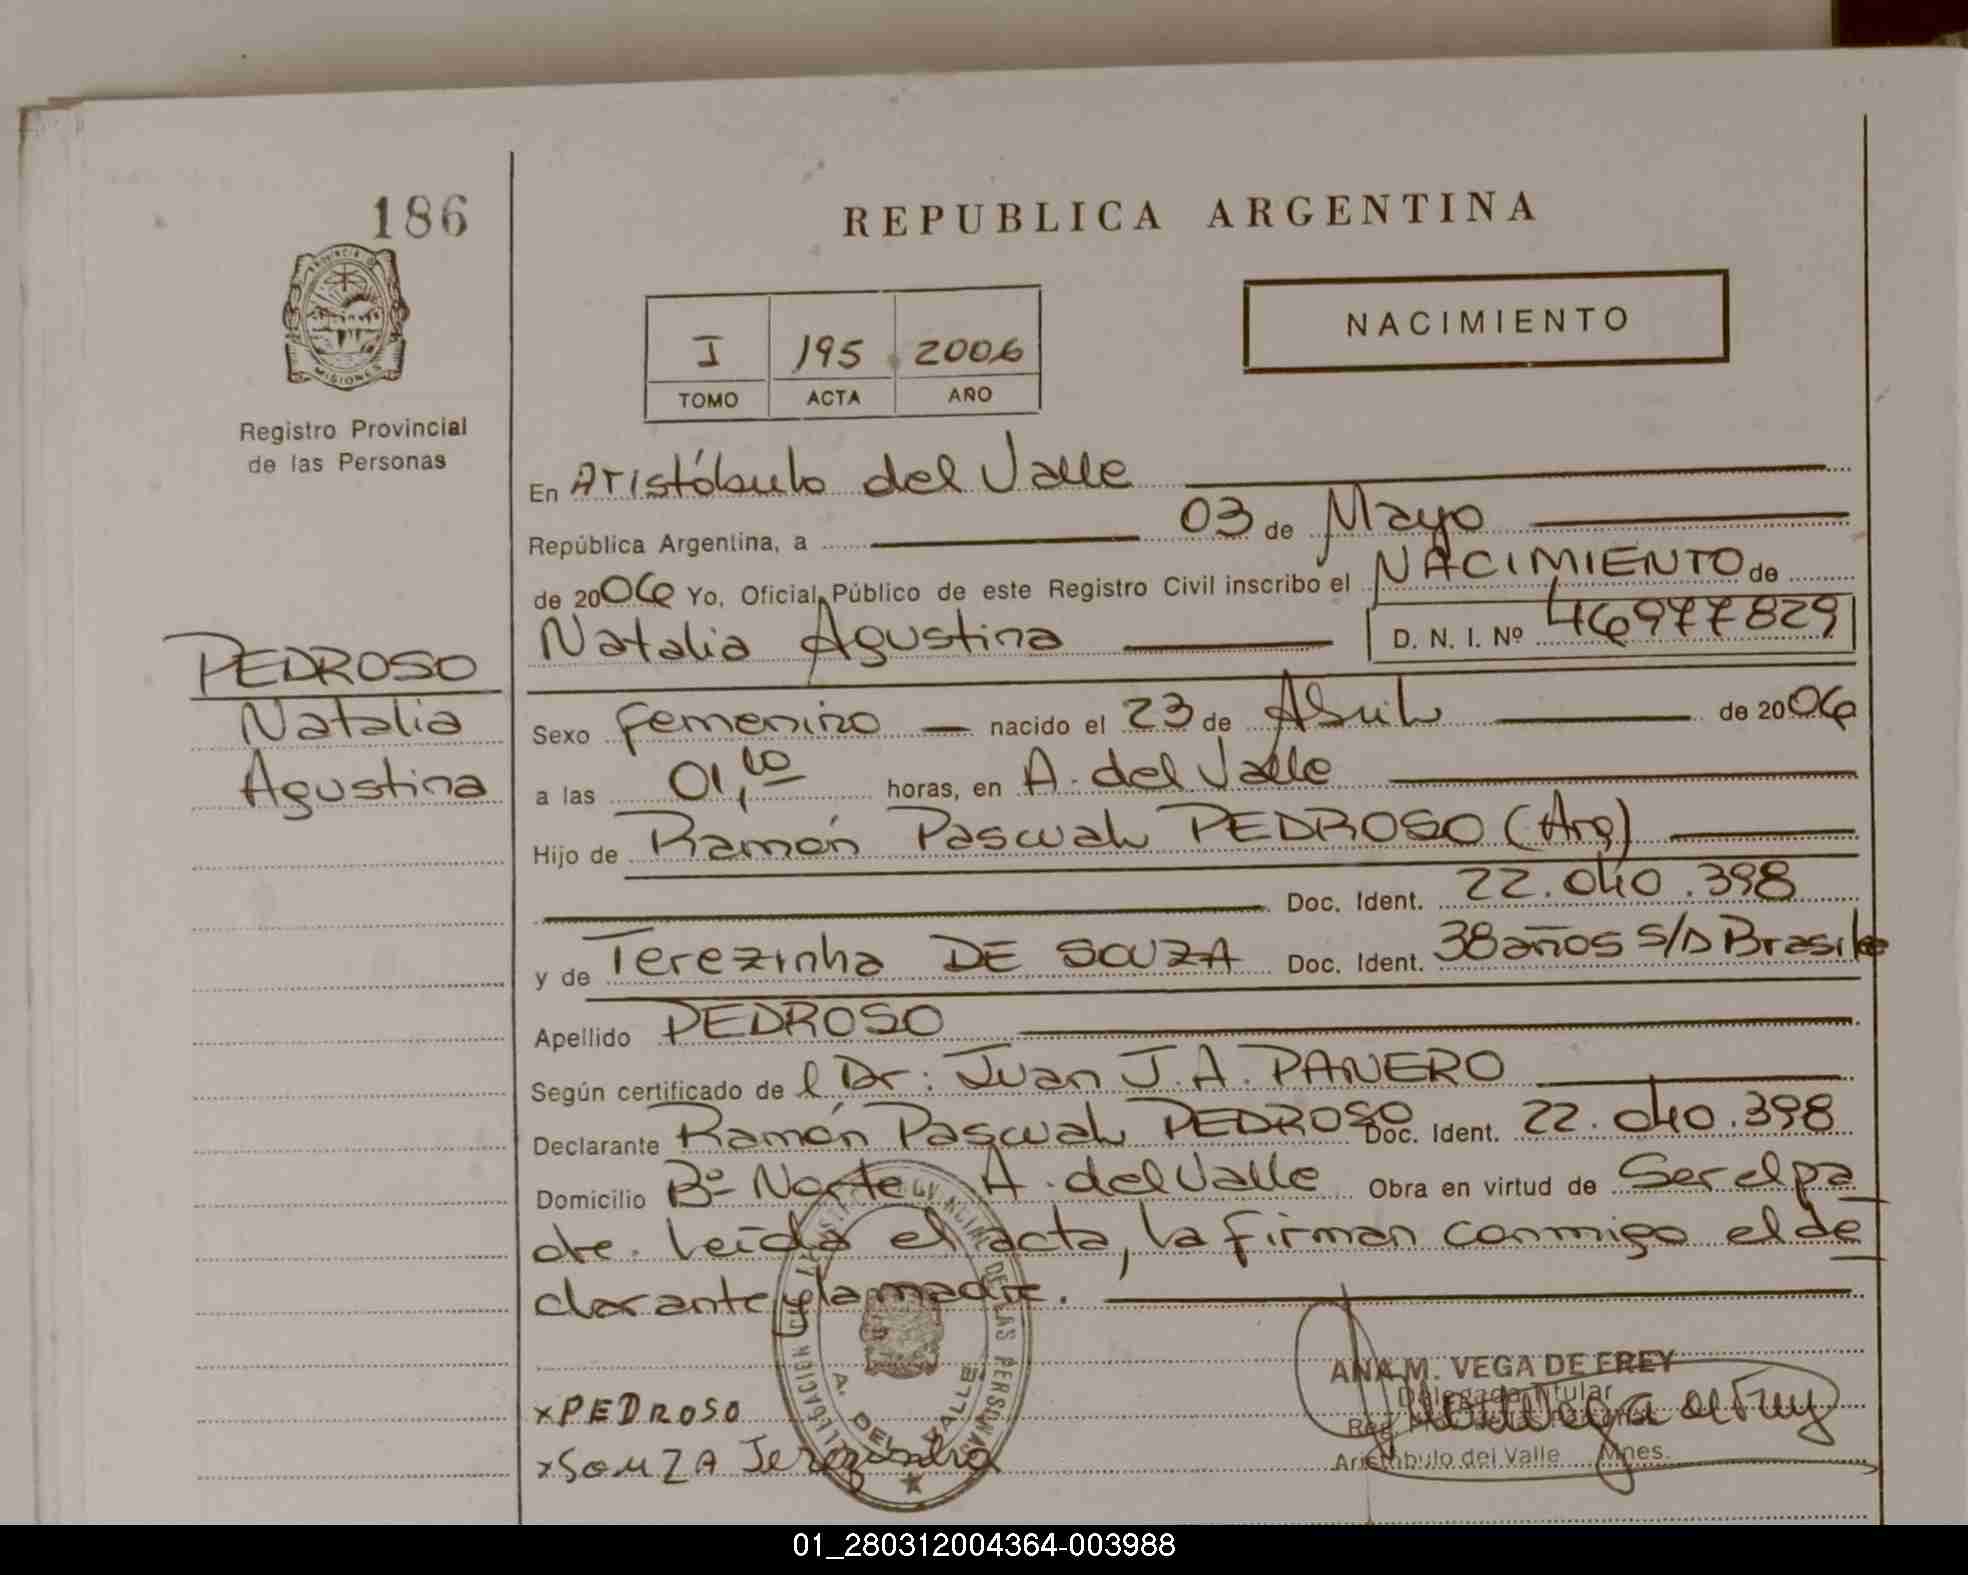 186
REPUBLICA ARGENTINA
PROVINCIA D
MISIONES
Registro Provincial
de las Personas
I 195 2006
TOMO ACTA AÑO
NACIMIENTO
En Aristóbulo del Valle
República Argentina, a 03 de Mayo
de 2006 Yo, Oficial Público de este Registro Civil inscribo el NACIMIENTO de
Natalia Agustina D. N. I. Nº 46977829
PEDROSO
Natalia
Agustina
Sexo femenino nacido el 23 de Abril de 2006
a las 01,10 horas, en A. del Valle
Hijo de Ramón Pascual PEDROSO (Arg)
Doc. Ident. 22.040.398
y de Terezinha DE SOUZA Doc. Ident. 38 años S/D Brasile
Apellido PEDROSO
Según certificado del Dr: Juan J. A. PANERO
Declarante Ramón Pascual PEDROSO Doc. Ident. 22.040.398
Domicilio Bº Norte A. del Valle Obra en virtud de Ser el pa
dre. Leída el acta, la firman conmigo el de
clarante y la madre.
DELEGACION DE LAS PERSONAS
A. DEL VALLE
ANA M. VEGA DE FREY
Delegada Titular
Aristóbulo del Valle Mnes.
x PEDROSO
x SOUZA Terezinha
01_280312004364-003988